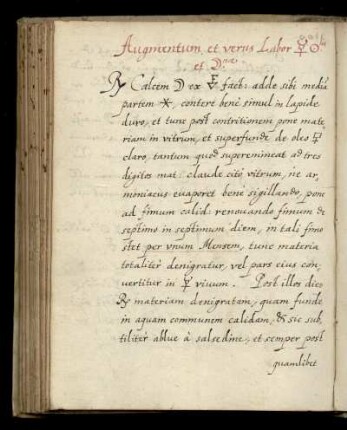 Augmentum et verus Labor ☿ ☉
et ☽
℞ Calcem ☽ ex factā: adde sibi mediā
partem ✶, contere benè simul in lapide
duro, et tunc post contritionem pone mate
riam in vitrum, et superfunde de oleo ☿
claro, tantum quod superemineat ad tres
digitos mat: claude citò vitrum, ne ar,
moniacus euaporet benè sigillando, pone
ad fimum calid: renouando fimum de
septimo in septimum diem, in tali fimo
stet per vnum Mensem, tunc materia
totalitèr denigratur, vel pars eius con,
vertitur in ☿ viuum. Post illos dies
℞ materiam denigratam, quam funde
in aquam communem calidam, & sic sub,
tilitèr ablue à salsedine, et semper post
quamlibet